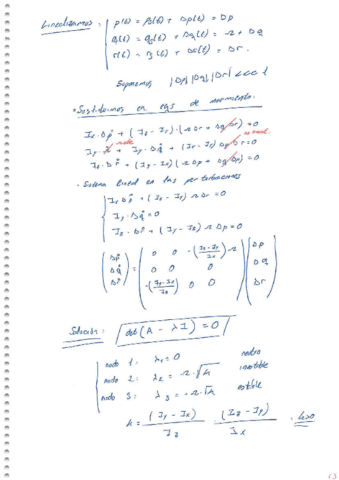 Linealizamos: { p(t) = p₀(t) + Δp(t) = Δp
q(t) = q₀(t) + Δq(t) = Ω + Δq
r(t) = r₀(t) + Δr(t) = Δr.
Suponemos |Δp| |Δq| |Δr| <<< 1
• Sustituimos en eqs de movimiento:
Ix·Δṗ + (Iz - Iy)·(ΩΔr + Δq Δr) = 0
Iy· + Iy·Δq̇ + (Ix - Iz) Δp Δr = 0
Iz·Δṙ + (Iy - Ix)(ΩΔp + Δq Δp) = 0
• Sistema lineal en las perturbaciones
{ Ix Δṗ + (Iz - Iy) ΩΔr = 0
Iy·Δq̇ = 0
Iz·Δṙ + (Iy - Ix) ΩΔp = 0
(Δṗ Δq̇ Δṙ) = (0 0 -((Iz-Iy)/Ix)Ω
0 0 0
-((Iy-Ix)/Iz) 0 0) (Δp Δq Δr)
Solución: det(A - λI) = 0
{ modo 1: λ₁ = 0 neutro
modo 2: λ₂ = Ω·√k inestable
modo 3: λ₃ = -Ω·√k estable
k = (Iy - Ix)/Iz · (Iz - Iy)/Ix . k>0
13